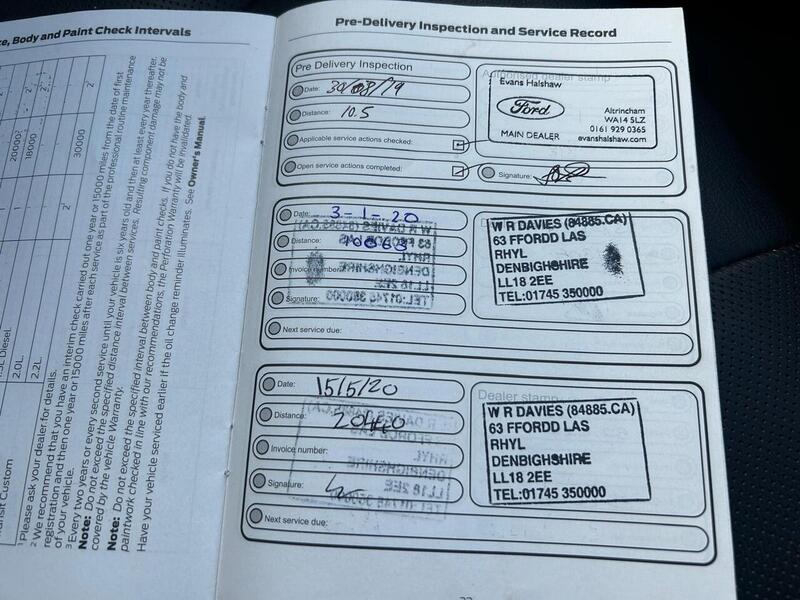 e, Body and Paint Check Intervals
20000²
18000
30000
2.0L.
2.2L.
ransit Custom
¹ Please ask your dealer for details.
² We recommend that you have an interim check carried out one year or 15000 miles from the date of first
registration and then one year or 15000 miles after each service as part of the professional routine maintenance
of your vehicle.
³ Every two years or every second service until your vehicle is six years old and then at least every year thereafter.
Note: Do not exceed the specified distance interval between services. Resulting component damage may not be
covered by the vehicle Warranty.
Note: Do not exceed the specified interval between body and paint checks. If you do not have the body and
paintwork checked in line with our recommendations, the Perforation Warranty will be invalidated.
Have your vehicle serviced earlier if the oil change reminder illuminates. See Owner's Manual.
Pre-Delivery Inspection and Service Record
Pre Delivery Inspection
Date: 30/08/19
Distance: 10.5
Applicable service actions checked:
Open service actions completed:
Authorised dealer stamp
Evans Halshaw
Ford
MAIN DEALER
Altrincham
WA14 5LZ
0161 929 0365
evanshalshaw.com
Signature:
Date: 3-1-20
Distance:
Invoice number:
Signature:
Next service due:
W R DAVIES (84885.CA)
63 FFORDD LAS
RHYL
DENBIGHSHIRE
LL18 2EE
TEL:01745 350000
Date: 15/5/20
Distance: 20440
Invoice number:
Signature:
Next service due:
Dealer stamp
W R DAVIES (84885.CA)
63 FFORDD LAS
RHYL
DENBIGHSHIRE
LL18 2EE
TEL:01745 350000